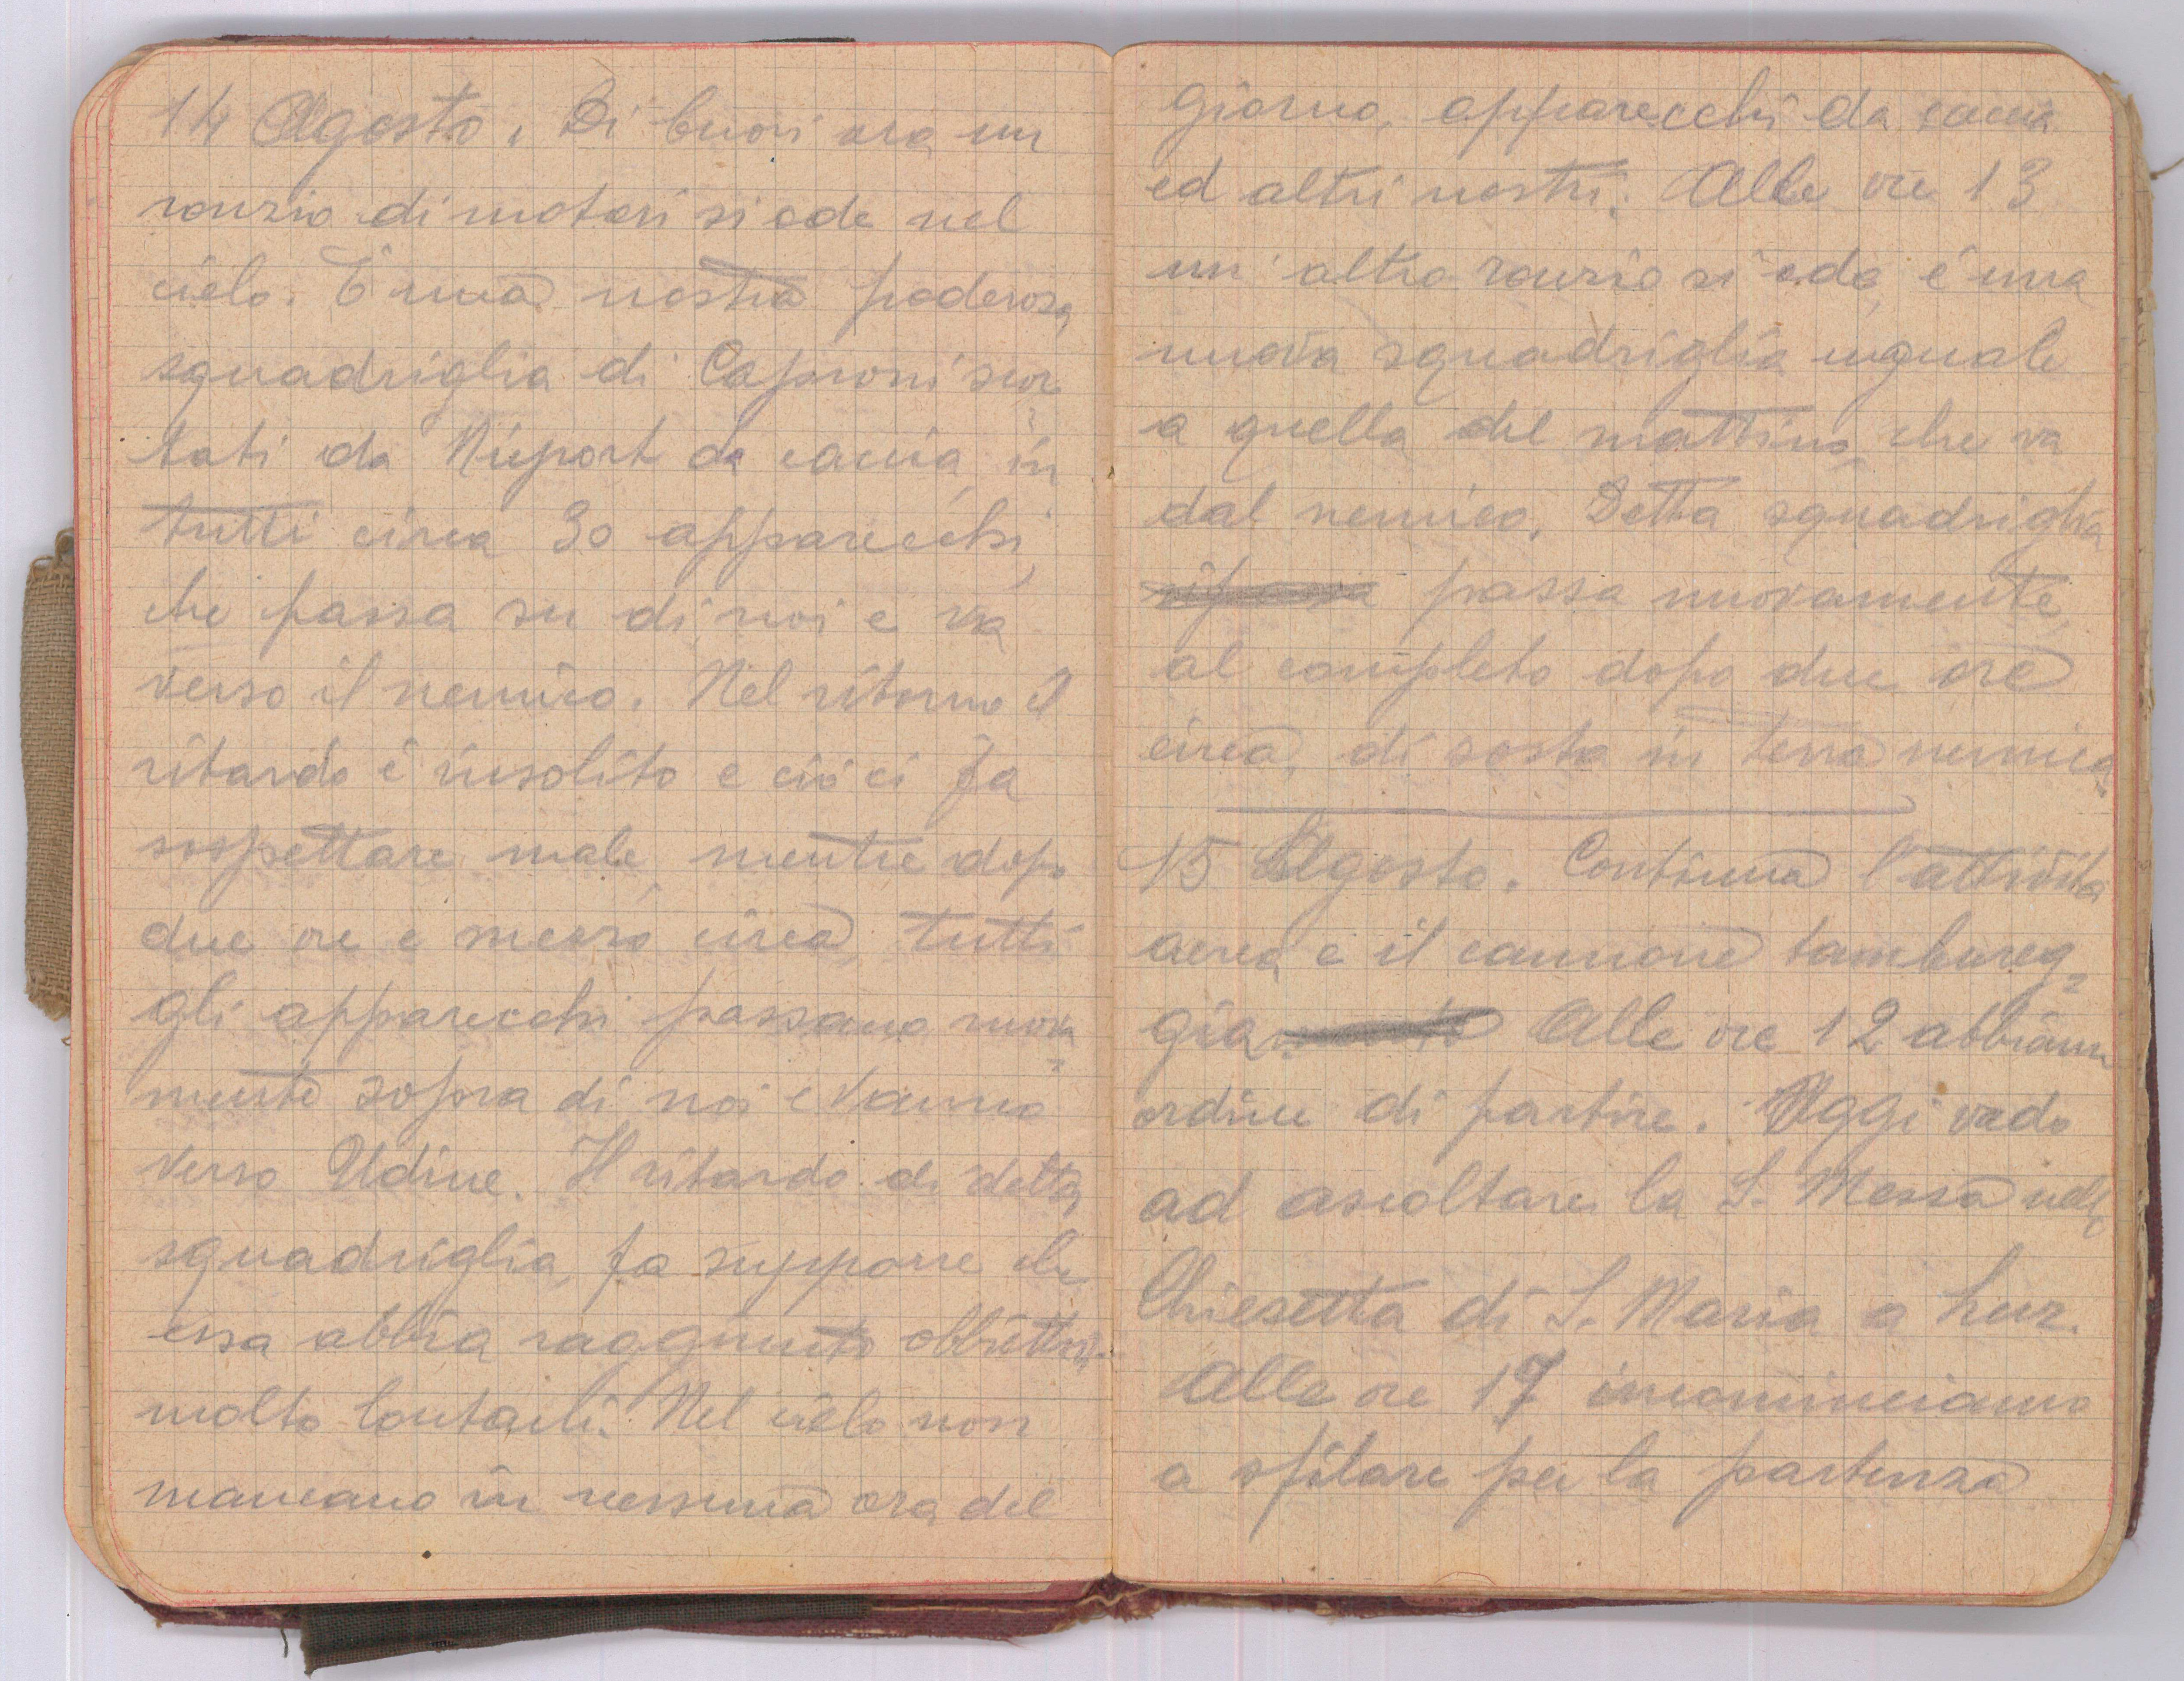 14 Agosto. Di buon ora un
ronzio di motori si ode nel
cielo. È una nostra poderosa
squadriglia di Caproni scor
tati da Nieport da caccia, in
tutti circa 30 apparecchi,
che passa su di noi e va
verso il nemico. Nel ritorno il
ritardo è insolito e ciò ci fa
sospettare male, mentre dopo
due ore e mezzo circa, tutti
gli apparecchi passano nuova=
mente sopra di noi e vanno
verso Udine. Il ritardo di detta
squadriglia, fa supporre che
essa abbia raggiunto obbiettivi
molto lontani. Nel cielo non
mancano in nessuna ora del
giorno, apparecchi da caccia
ed altri nostri. Alle ore 13
un' altro ronzio si ode, è una
nuova squadriglia uguale
a quella del mattino, che va
dal nemico. Detta squadriglia
ripassa passa nuovamente,
al completo dopo due ore
circa, di sosta in terra nemica.
15 Agosto. Continua l'attività
aerea e il cannone tambureg=
gia Alle ore 12 abbiamo
ordine di partire. Oggi vado
ad ascoltare la S. Messa nella
Chiesetta di S. Maria a Luz.
Alle ore 17 incominciamo
a sfilare per la partenza